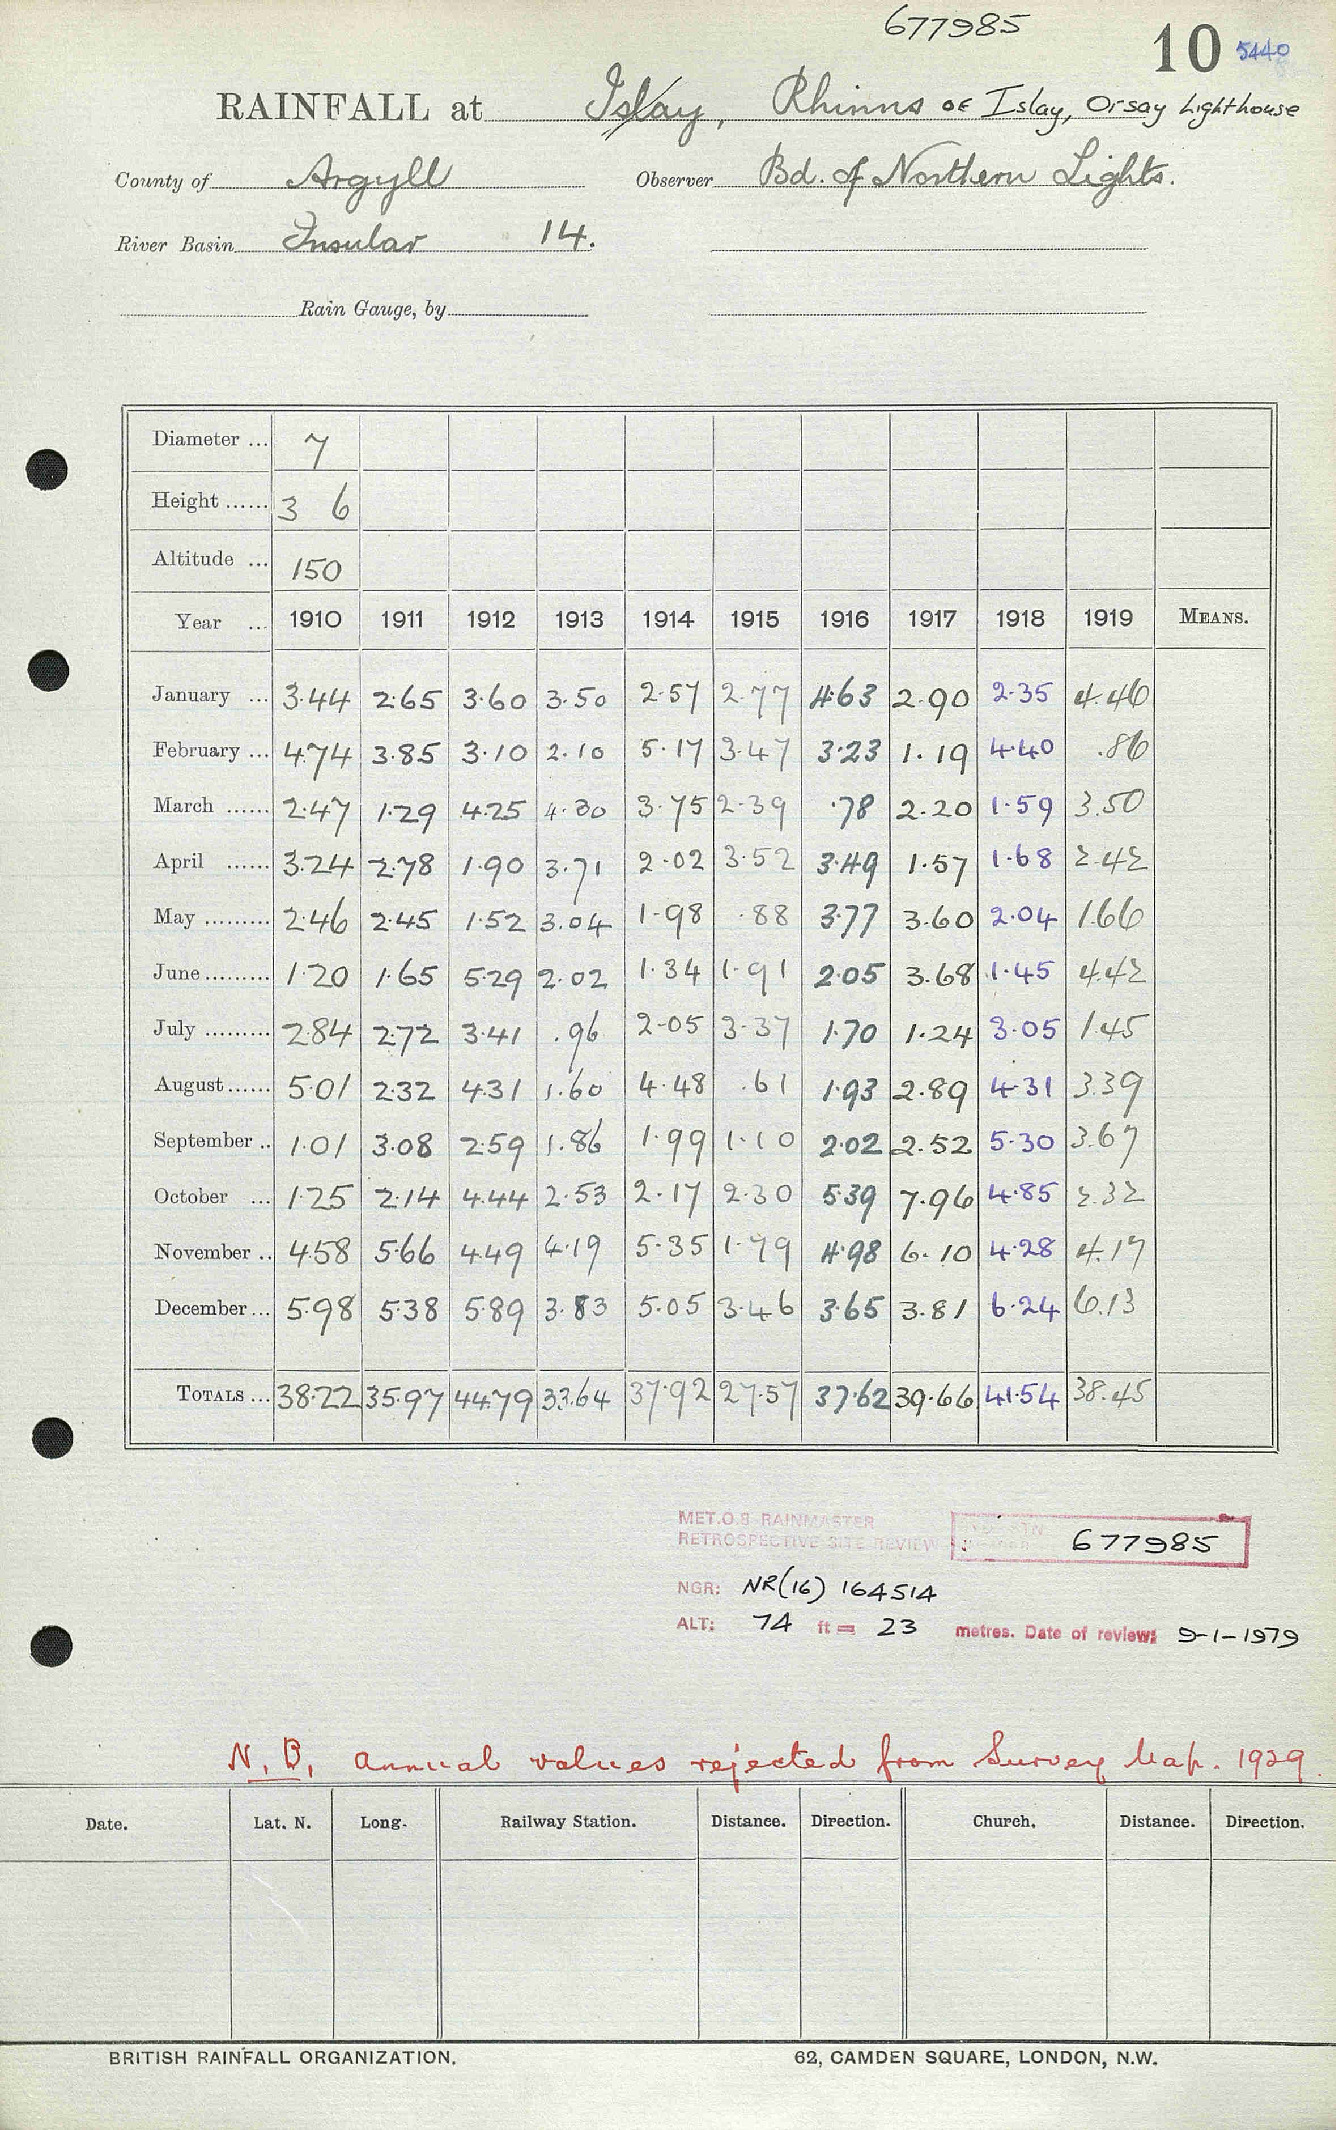 677985
10 5440
RAINFALL at Islay, Rhinns OF Islay, Orsay Lighthouse
County of Argyll Observer Bd. of Northern Lights.
River Basin Insular 14.
Rain Gauge, by
Diameter ... 7
Height ...... 3 6
Altitude ... 150
Year ... 1910 1911 1912 1913 1914 1915 1916 1917 1918 1919 MEANS.
January ... 3.44 2.65 3.60 3.50 2.57 2.77 4.63 2.90 2.35 4.46
February ... 4.74 3.85 3.10 2.10 5.17 3.47 3.23 1.19 4.40 .86
March ...... 2.47 1.29 4.25 4.30 3.75 2.39 .78 2.20 1.59 3.50
April ...... 3.24 2.78 1.90 3.71 2.02 3.52 3.49 1.57 1.68 2.42
May ......... 2.46 2.45 1.52 3.04 1.98 .88 3.77 3.60 2.04 1.66
June ......... 1.20 1.65 5.29 2.02 1.34 1.91 2.05 3.68 1.45 4.42
July ......... 2.84 2.72 3.41 .96 2.05 3.37 1.70 1.24 3.05 1.45
August ...... 5.01 2.32 4.31 1.60 4.48 .61 1.93 2.89 4.31 3.39
September .. 1.01 3.08 2.59 1.86 1.99 1.10 2.02 2.52 5.30 3.67
October ... 1.25 2.14 4.44 2.53 2.17 2.30 5.39 7.96 4.85 2.32
November .. 4.58 5.66 4.49 4.19 5.35 1.79 4.98 6.10 4.28 4.17
December ... 5.98 5.38 5.89 3.83 5.05 3.46 3.65 3.81 6.24 6.13
TOTALS ... 38.22 35.97 44.79 33.64 37.92 27.57 37.62 39.66 41.54 38.45
MET.O.8 RAINMASTER
RETROSPECTIVE SITE REVIEW 677985
NGR: NR(16) 164514
ALT: 74 ft = 23 metres. Date of review: 9-1-1979
N.B. Annual values rejected from Survey Map. 1929.
Date. Lat. N. Long. Railway Station. Distance. Direction. Church. Distance. Direction.
BRITISH RAINFALL ORGANIZATION. 62, CAMDEN SQUARE, LONDON, N.W.